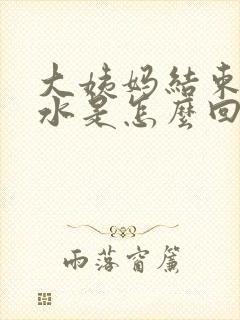 大姨妈結束
水是怎麼回
雨落窗簾